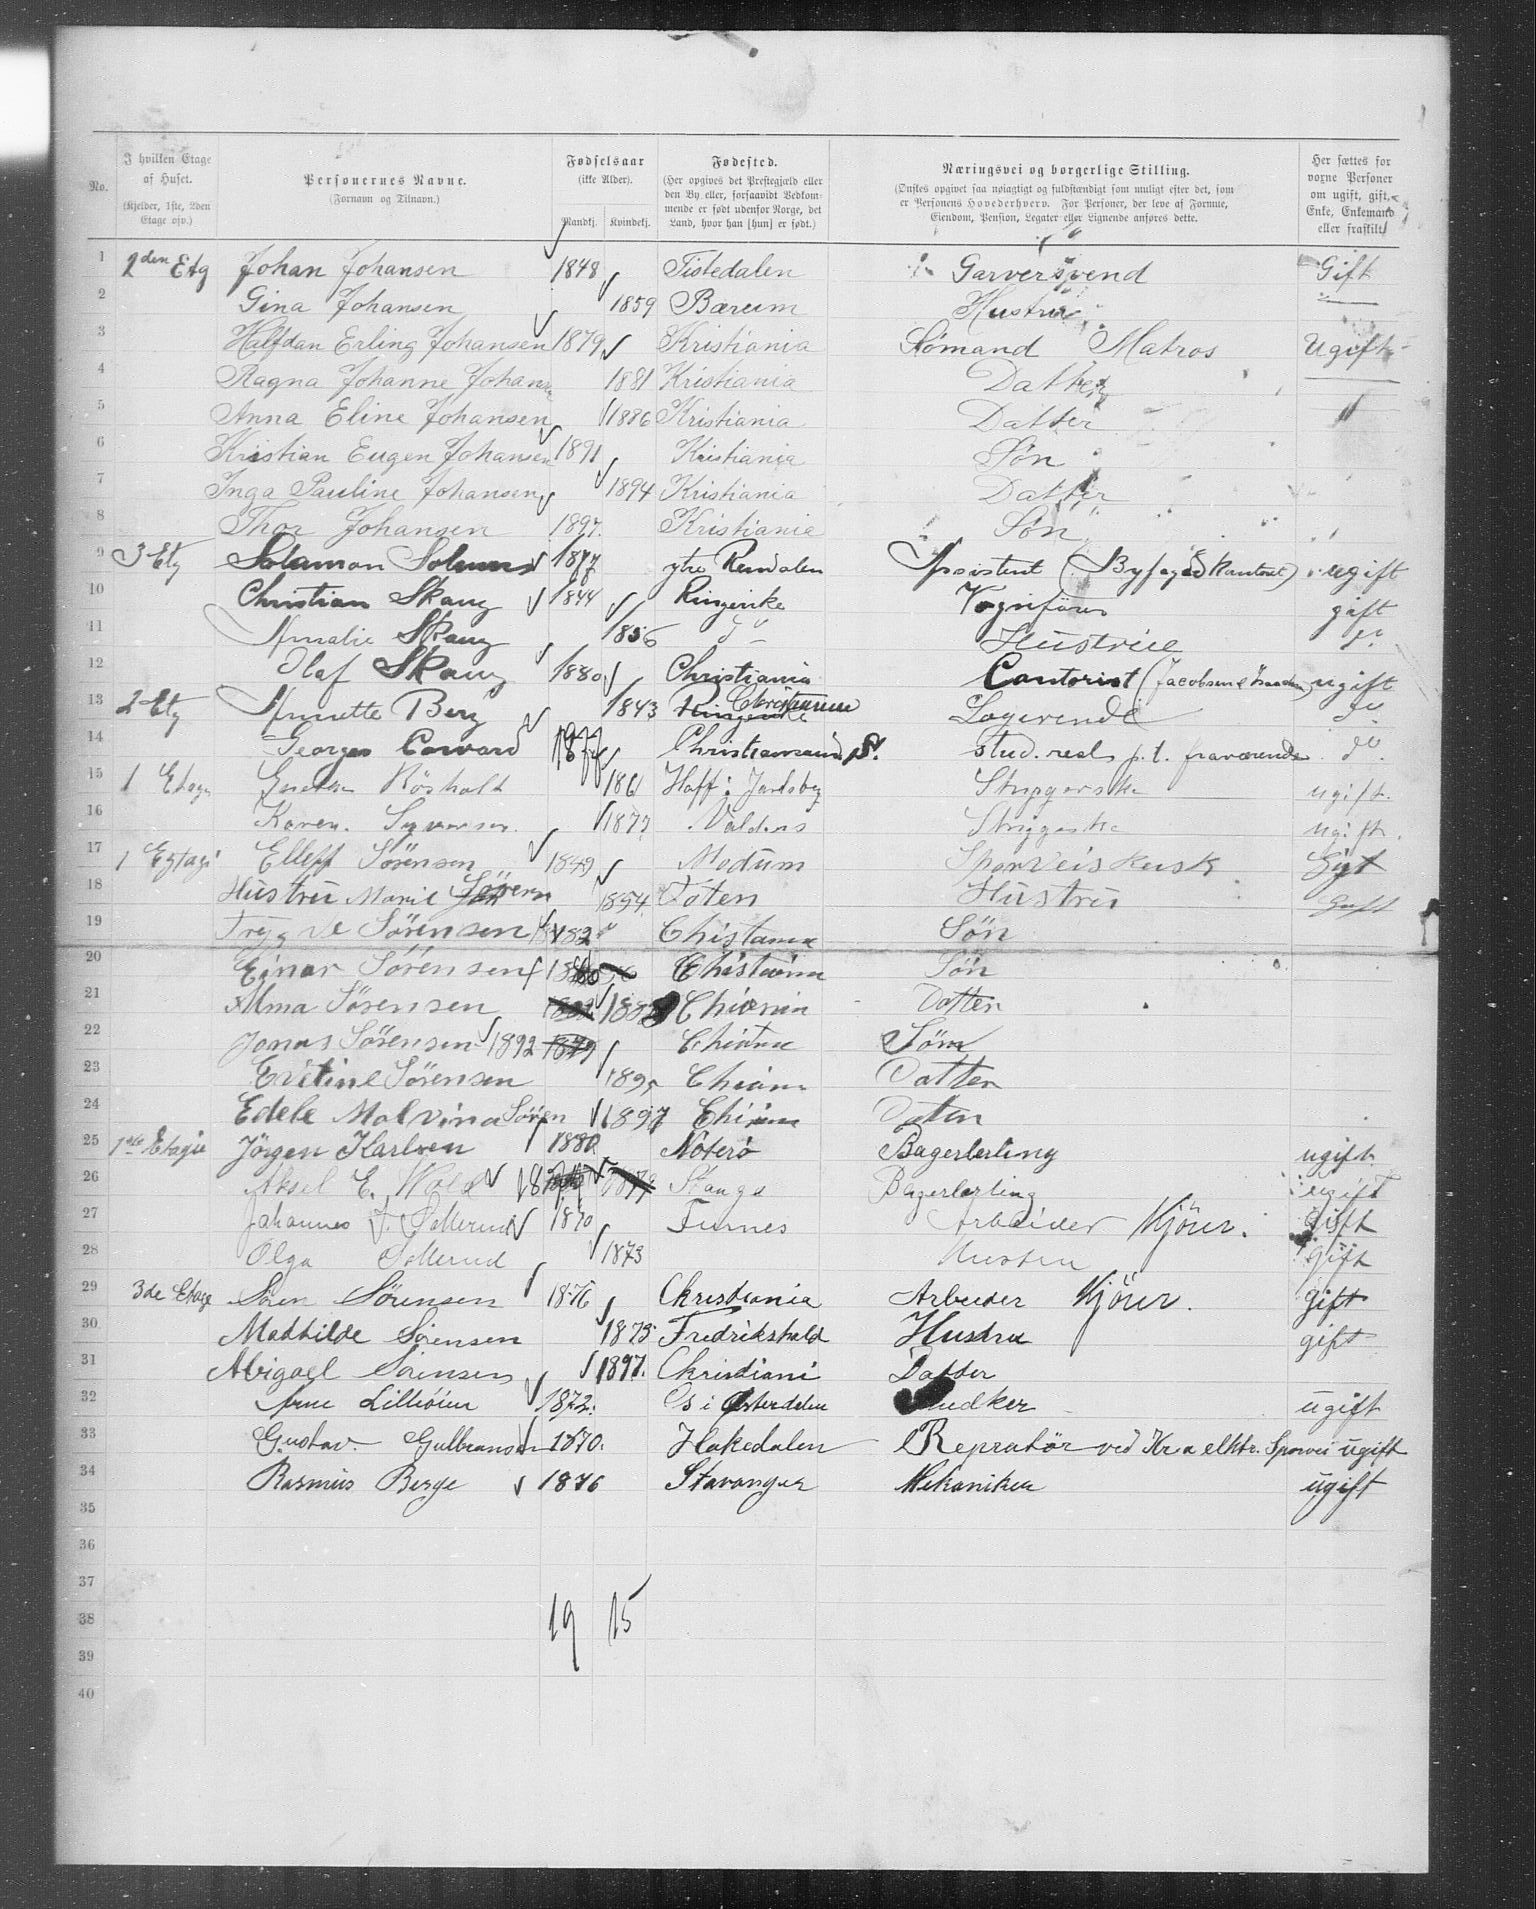 No.	I hvilken Etage af Huset. (Kjelder, 1ste, 2den Etage osv.)	Personernes Navne. (Fornavn og Tilnavn.)	Fødselsaar (ikke Alder). Mandkj. Kvindekj.	Fødested. (Her opgives det Prestegjæld eller den By eller, forsaavidt Vedkommende er født udenfor Norge, det Land, hvor han [hun] er født.)	Næringsvei og borgerlige Stilling. (Ønskes opgivet saa nøiagtigt og fuldstændigt som muligt efter det, som er Personens Hovederhverv. For Personer, der leve af Formue, Eiendom, Pension, Legater eller Lignende anføres dette.	Her sættes for voxne Personer om ugift, gift, Enke, Enkemand eller fraskilt
1 2den Etg Johan Johansen 1848 Tistedalen Garversvend Gift
2 Gina Johansen 1859 Bærum Hustru
3 Halfdan Erling Johansen 1879 Kristiania Sømand Matros Ugift
4 Ragna Johanne Johansen 1881 Kristiania Datter
5 Anna Eline Johansen 1886 Kristiania Datter
6 Kristian Eugen Johansen 1891 Kristiania Søn
7 Inga Pauline Johansen 1894 Kristiania Datter
8 Thor Johansen 1897. Kristiania Søn
9 3 Etg Salamon 1877 ytre Rendalen Assistent (Byfogdkantoret) ugift
10 Christian Skaug 1844 Ringerike Vognfører gift
11 Amalie Skaug 1856 do Hustrue do
12 Olaf Skaug 1880 Christiania Contorist (Jacobsen & ugift
13 2 Etg Annette Berg 1843 Ringerike Christiania Logerende do
14 Georges 1877 Christiansand S. stud. real. p.t. fraværende do
15 1 Etage Røsholt 1861 Hoff i Jarlsberg Strygerske ugift.
16 Karen 1873 Valders Strygerske ugift.
17 1 Egtage Elleff Sørensen 1849 Modum Sporveiskusk Gift
18 Hustru Marie Sørensen 1854 Toten Hustru Gift
19 Trygve Sørensen 1882 Chistania Søn
20 Einar Sørensen Chistiania Søn
21 Alma Sørensen 188 Datter
22 Jonas Sørensen 1892 1879 Søn
23 Sørensen 1895 Datter
24 Edele Malvina Søren 1897 Daten
25 1ste Etagie Jörgen Karlsen 1880 Nöterö Bagerlerling ugift
26 Aksel E. Wold Stange Bagerlerling ugift
27 Johannes J. Sollerud 1870 Furnes Arbeider Kjörer. Gift
28 Olga Sollerud 1873 Hustru gift
29 3de Etage Sören Sörensen 1876 Christiania Arbeider Kjörer. gift
30 Mathilde Sörensen 1875 Fredrikshald Hustru gift
31 Abigael Sörensen 1897. Christiani Datter
32 Arne Lilleöien 1872. Os i Østerdalen Snedker ugift
33 Gustav. Gulbransen 1870. Hakedalen Repratör ved Kra elktr. Sporvei ugift
34 Rasmus Berge 1876 Stavanger Mekaniker ugift
35
36
37
38 19 15
39
40